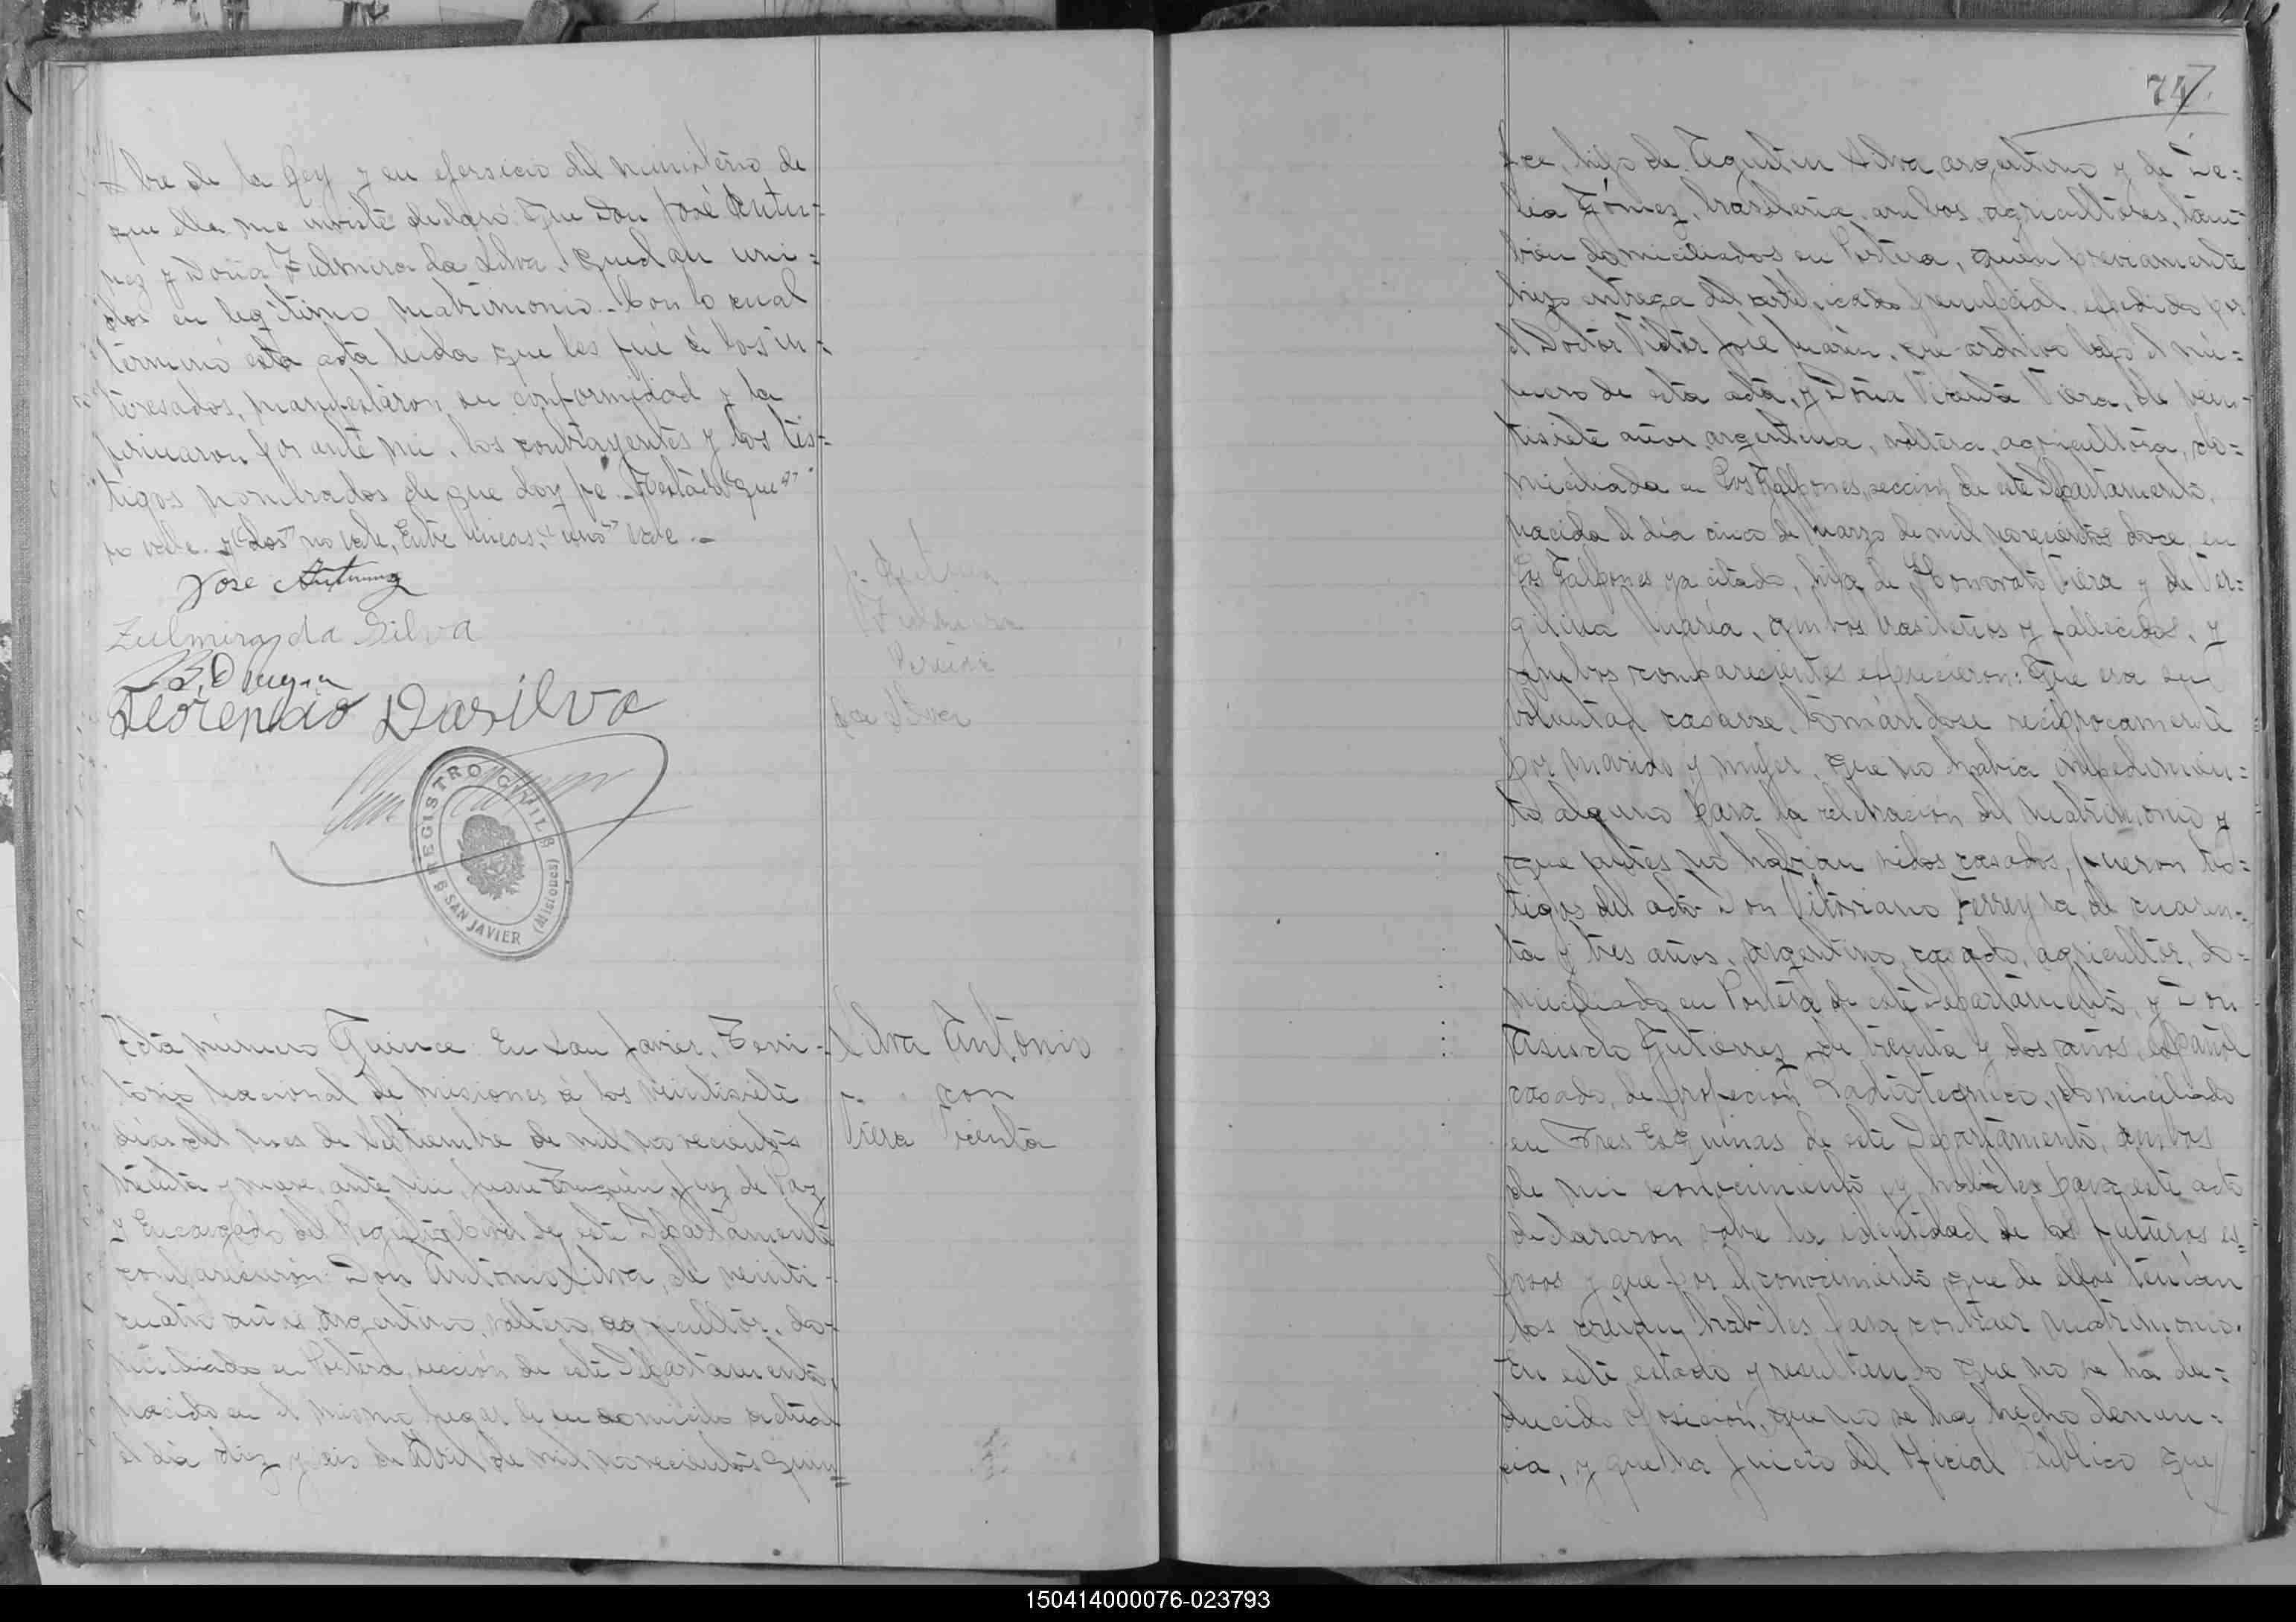 bre de la Ley y en ejersicio del ministerio de
que ella me inviste declaro: Que Don José Antu=
nez y Doña Zulmira da Silva, quedan uni=
dos en legitimo matrimonio. Con lo cual
terminó esta acta leida que les fué á los in=
teresados, manifestaron su conformidad y la
firmaron por ante mi, los contrayentes y los tes=
tigos nombrados de que doy fé. Testado "que"
no vale. y "dos" no vale, Entre lineas, "uno" vale.-
Jose Antunez
Zulmira da Silva
Florencio Dasilva
REGISTRO CIVIL
SAN JAVIER (Misiones)
Acta número Quince: En San Javier, Terri-
torio Nacional de Misiones á los veintisiete
dias del mes de Septiembre de mil novecientos
treinta y nueve, ante mi, Juan Juez de Paz
y Encargado del Registro Civil de este Departamento
comparecieron: Don Antonio Silva, de veinti-
cuatro años, argentino, soltero, agricultor, do-
miciliado en Portera, sección de este Departamento,
nacido en el mismo lugar de su domicilio actual
el dia diez y seis de Abril de mil novecientos quin=
Silva Antonio
con
Viera Vicenta
74
ce, hijo de Agustin Silva, argentino y de De=
lia Gómez, brasileña, ambos, agricultores, tam=
bién domiciliados en Portera, quién previamente
hizo entrega del certificado prenupcial, espedido por
el Doctor Victor José Marin, que archivo bajo el nú=
mero de esta acta, y Doña Vicenta Viera, de vein-
tisiete años, argentina, soltera, agricultora, do=
miciliada en Los Galpones, sección de este Departamento,
nacida el día cinco de marzo de mil novecientos doce, en
Los Galpones ya citado, hija de Honorato Viera y de Ver=
gilina María, ambos brasileños y fallecidos, y
ambos comparecientes espucieron: Que era su
voluntad casarse, tomándose recíprocamente
por marido y mujer, que no habia impedimien=
to alguno para la celebración del matrimonio y
que antes no habian sidos casados, fueron tes=
tigos del acto Don Vitoriano Ferreyra, de cuaren=
ta y tres años, argentino, casado, agricultor, do=
miciliado en Portera de este Departamento, y Don
Asisclo Gutierrez, de treinta y dos años, español
casado, de profeción Radiotecnico, domiciliado
en Tres Esquinas de este Departamento, ambos
de mi conocimiento y hábiles para este acto
declararon sobre la identidad de los futuros es=
posos y que por el conocimiento que de ellos tenían
los creían hábiles para contraer matrimonio.
En este estado y resultando que no se há de=
ducido oposición, que no se ha hecho denun=
cia, y que ha juicio del Oficial Público que
150414000076-023793